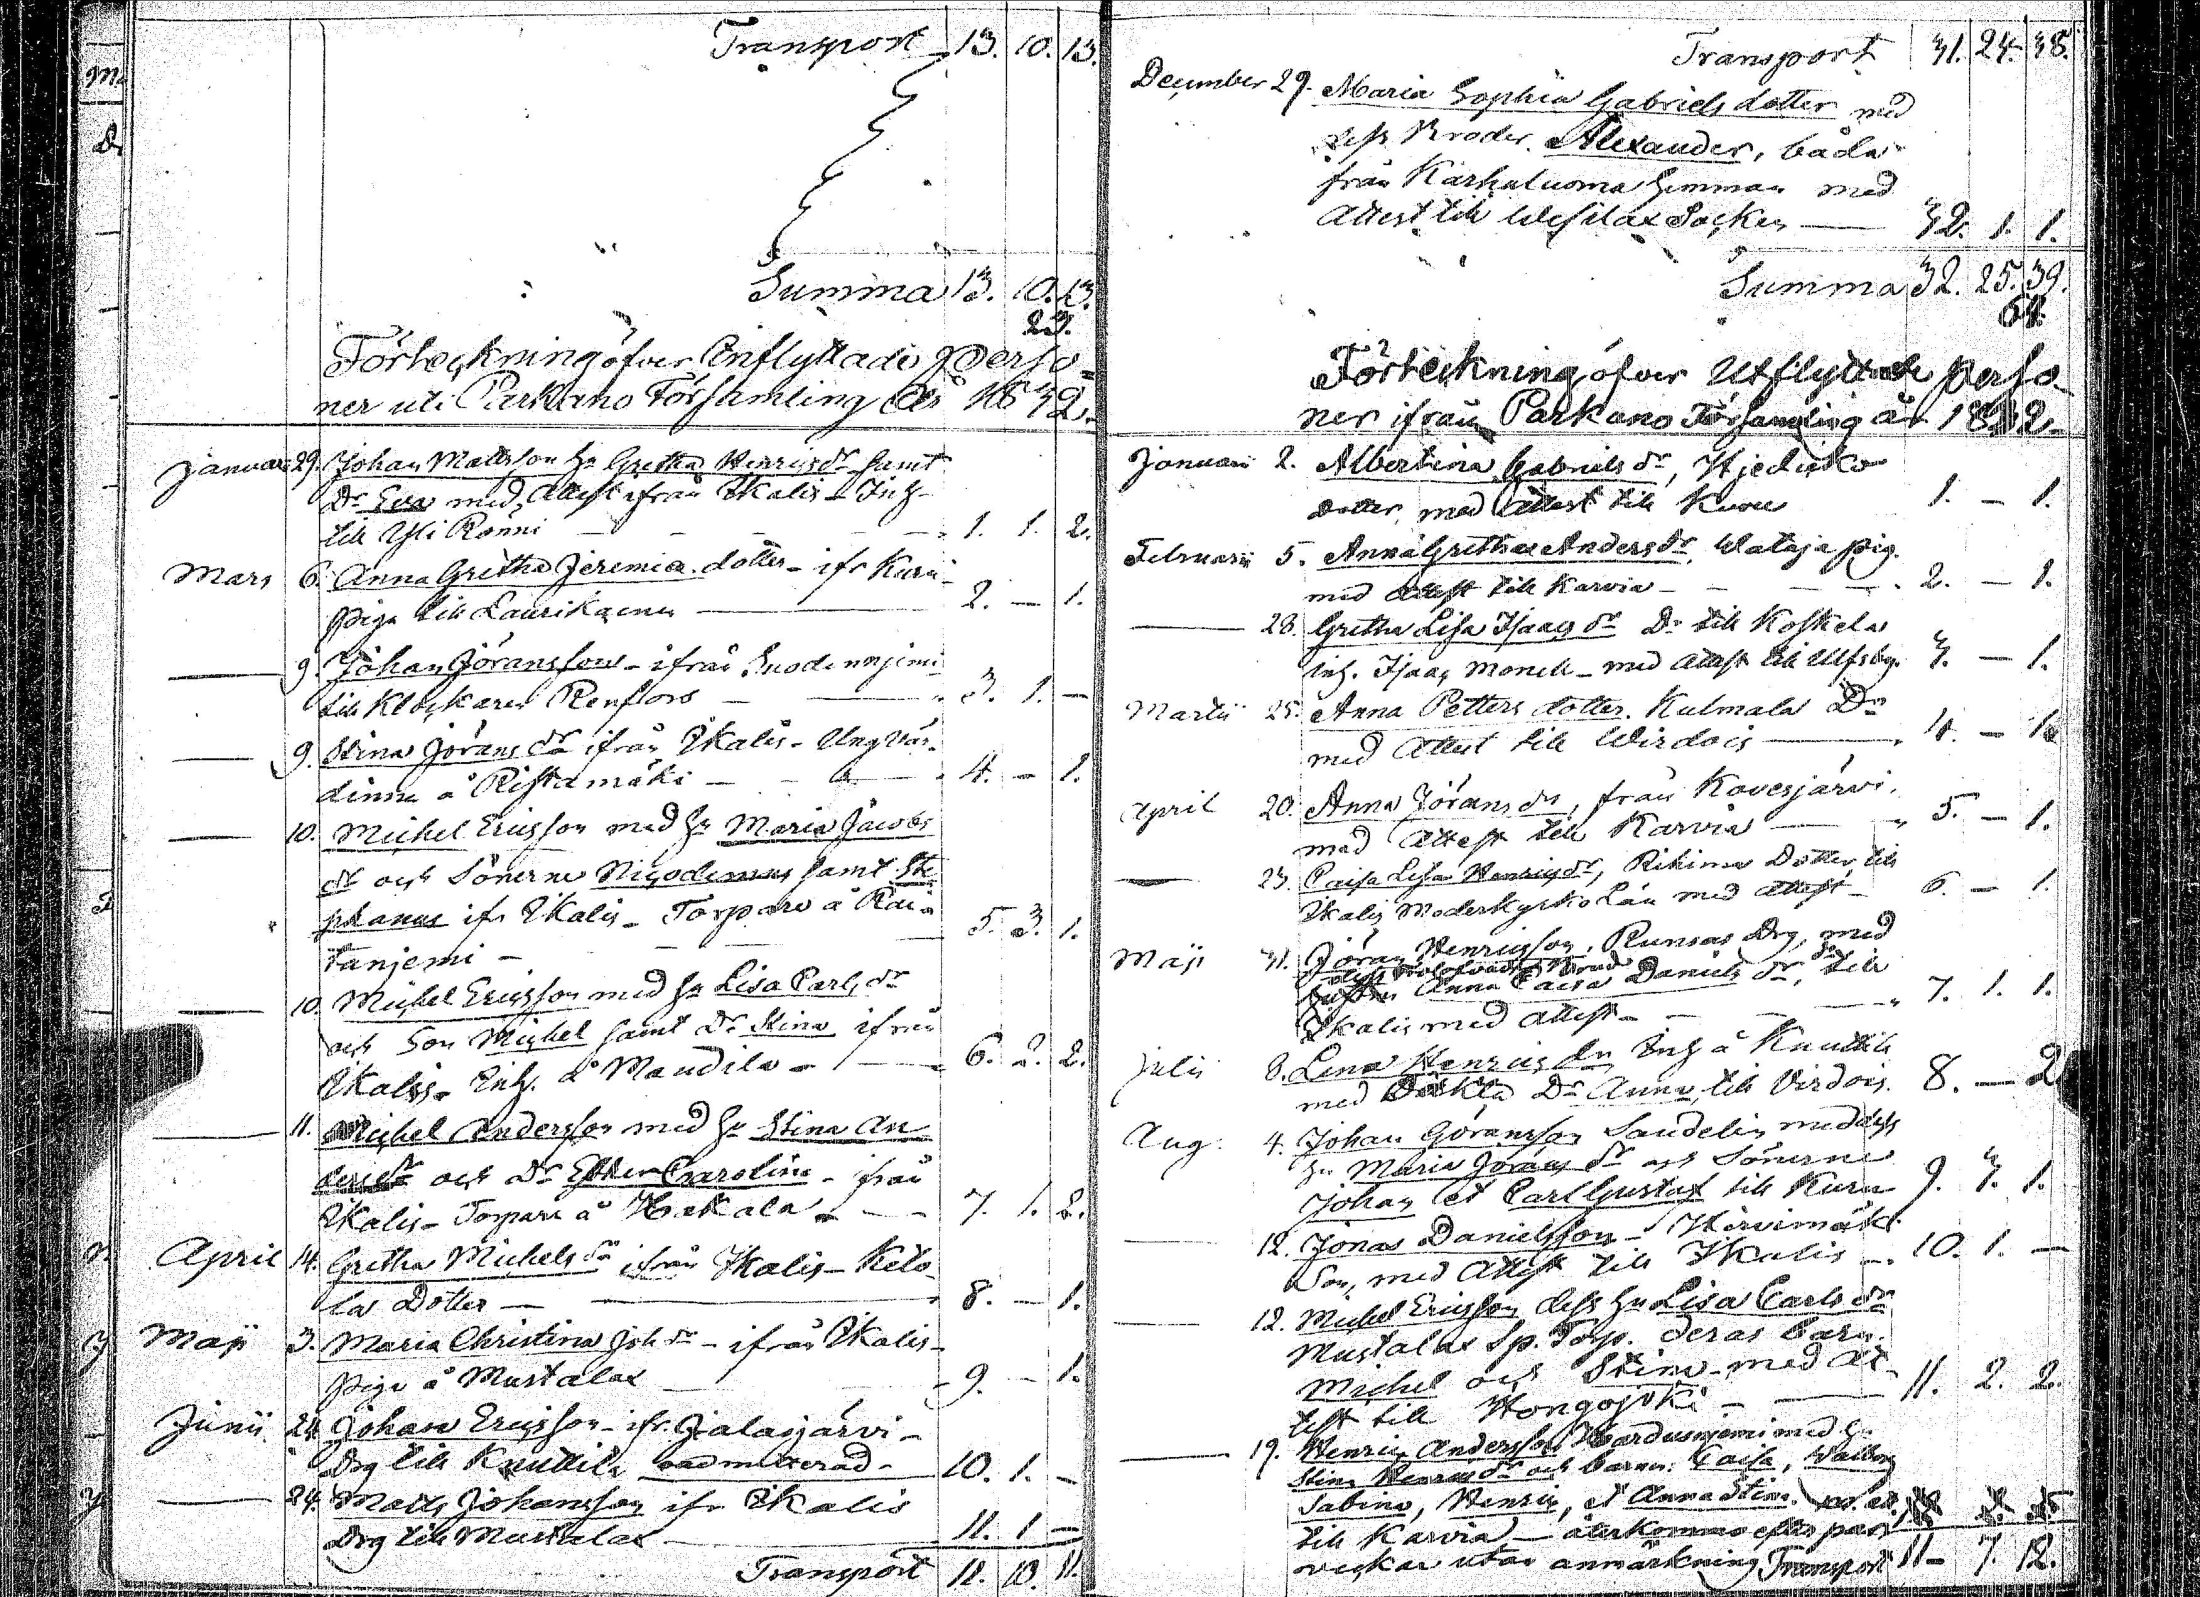 Transport 13. 10. 13.
Summa 13. 10. 13.
23.
Förteckning öfver Inflyttade perso-
ner uti Parkano Församling År 1832.
Januar 29. Johan Mattsson hu Gretha Henricsdr samt
Dr Eva med attest ifrån Ikalis - Inh
till Yli Rönni - 1. 1. 2.
Mars 6. Anna Gretha Jeremiæ dotter - ifr Kuru -
Piga till Laurikainen 2. - 1.
9. Johan Jöransson - ifrån
till Klockaren Renfors - 3. 1. -
9. Stina Jörans dr ifrån Ikalis - Ung Vär-
dinna å Ristamäki - 4. - 1.
10. Michel Ericsson med hu Maria Jacobs
dr och Sönerne Nicodemus samt Ste
phanus ifr Ikalis - Torpare å Rai-
tanjemi - 5. 3. 1.
10. Michel Ericsson med hu Lisa Carls dr
och Son Michel samt Dr Stina ifrån
Ikalis - Inh. å Mandila - 6. 2. 2.
11. Michel Andersson med hu Stina An
dersdr och Dr Carolina - ifrån
Ikalis - Torpare å Hakala - 7. 1. 2.
April 14. Gretha Michels dr ifrån Ikalis - Keto-
la Dotter - 8. - 1.
Maji 3. Maria Christina Joh dr - ifrån Ikalis -
piga å Mustalax 9. - 1.
Junii 24. Johan Ericsson - ifr. Jalasjärvi -
Drg till Knuttila 10. 1. -
24. Matts Johansson ifr Ikalis
Drg till Mustalax 11. 1 -
Transport 11. 10. 11.
Transport 31. 24. 38.
December 29. Maria Sophia Gabriels dotter med
dess Broder Alexander, båda
från Karhuluoma hemman med
Attest till Wesilax Socken 32. 1. 1.
Summa 32. 25. 39.
64.
Förteckning öfver Utflyttade perso-
ner ifrån Parkano Församling År 1832.
Januarii 2. Albertina Gabriels dr,
Dotter, med Attest till Kuru 1. - 1.
Februarii 5. Anna Gretha Anders dr, Wataja pig.
med Attest till Karvia - 2. - 1.
28. Gretha Lisa Isaacs dr Dr till Koskela
inh. Isaac Monell - med Attest till Ulfsby. 3. - 1.
Martii 25. Anna Petters dotter. Kulmala Dr
med Attest till Wirdois 4. - 1.
April 20. Anna Jörans dr, från Kovesjärvi.
med Attest till Karvia 5. - 1.
23. Caisa Lisa Henricsdr, Dotter, till
Ikalis Moderkyrko Län med attest - 6. - 1.
Maji 31. Jöran Henricsson, Drg, med
Anna Caisa Daniels dr, till
Ikalis med attest - 7. 1. 1.
Julii 8. Lena Henrics dr Inh å Knuttila
med Dr Anna, till Virdois. 8. - 2
Aug. 4. Johan Göransson Sandelin med dess
hu Maria Jörans dr och Sönerne
Johan et Carl Gustaf till Kuru 9. 3. 1.
12. Jonas Danielsson - Hirvimäki
Son, med Attest till Ikalis - 10. 1. -
12. Michel Ericsson dess hu Lisa Carls dr
Mustalax Sp. Torp. deras barn.
Michel och Stina - med At-
test till Hongojoki - 11. 2. 2.
19. Henric Andersson med hu
Stina Henrics dr och barnen: Caisa, Walborg
Sabina, Henric, et Anna Stina.
till Karvia - återkommo efter par
veckor utan anmärkning Transport 11 - 7. 12.